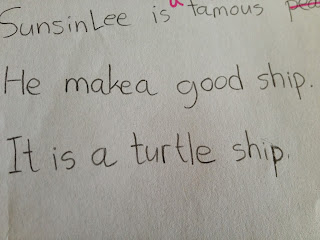 SunsinLee is a famous
He makea good ship.
It is a turtle ship.